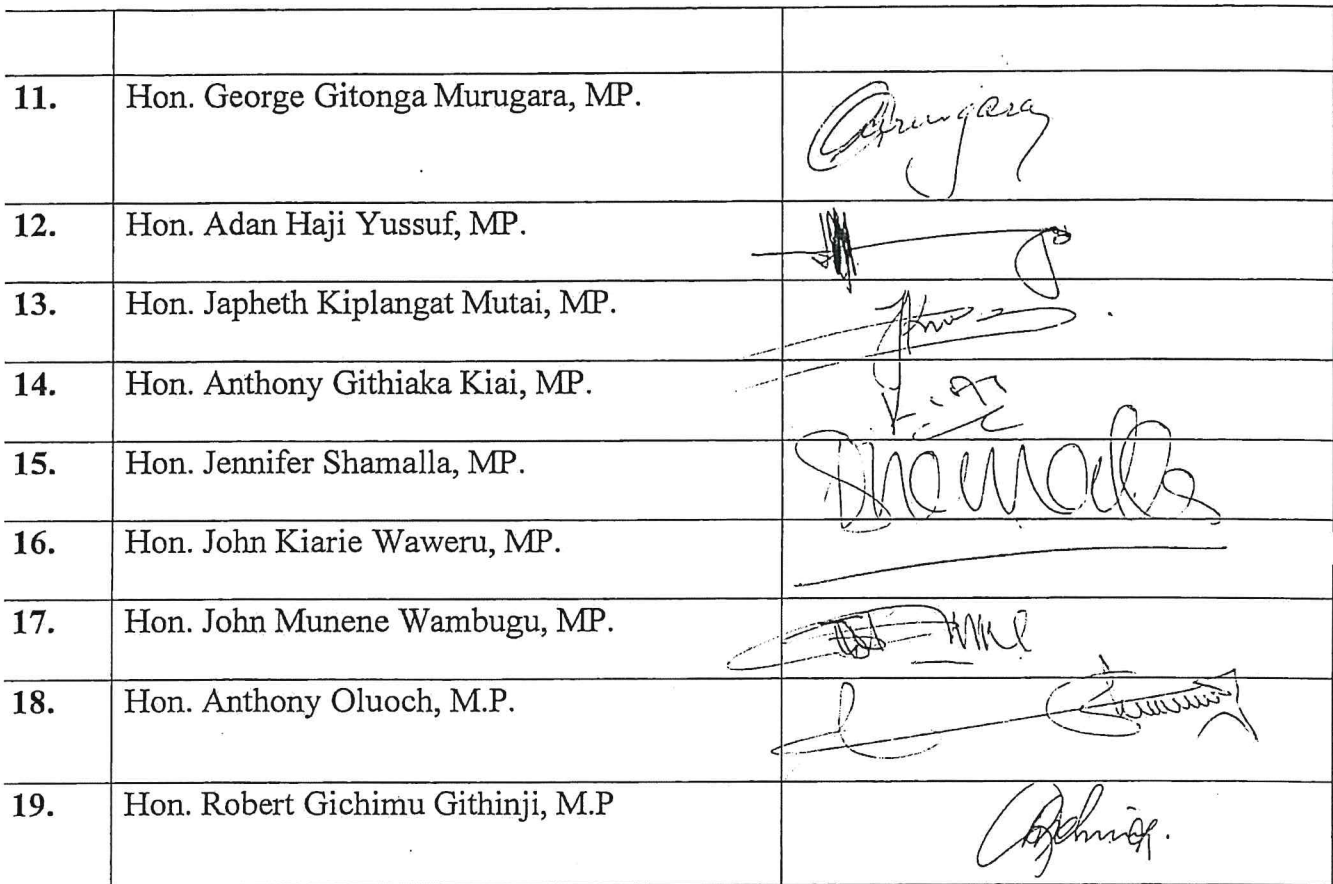 11. Hon. George Gitonga Murugara, MP.
12. Hon. Adan Haji Yussuf, MP.
13. Hon. Japheth Kiplangat Mutai, MP.
14. Hon. Anthony Githiaka Kiai, MP.
15. Hon. Jennifer Shamalla, MP. Shamalla
16. Hon. John Kiarie Waweru, MP.
17. Hon. John Munene Wambugu, MP.
18. Hon. Anthony Oluoch, M.P.
19. Hon. Robert Gichimu Githinji, M.P